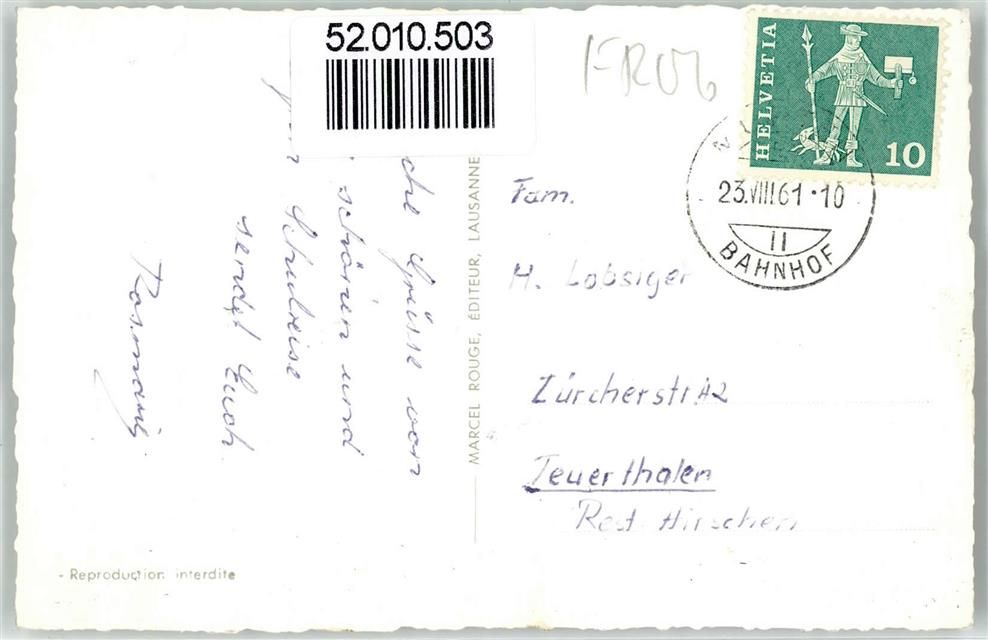 52.010.503
FR06
HELVETIA
10
23.VIII 61 · 10
11
BAHNHOF
che Grüsse von
schönen und
Schulreise
sendet Euch
Rosmarie
MARCEL ROUGE, ÉDITEUR, LAUSANNE
Fam.
H. Lobsiger
Zürcherstr.
Feuerthalen
Rest. Hirschen
- Reproduction interdite